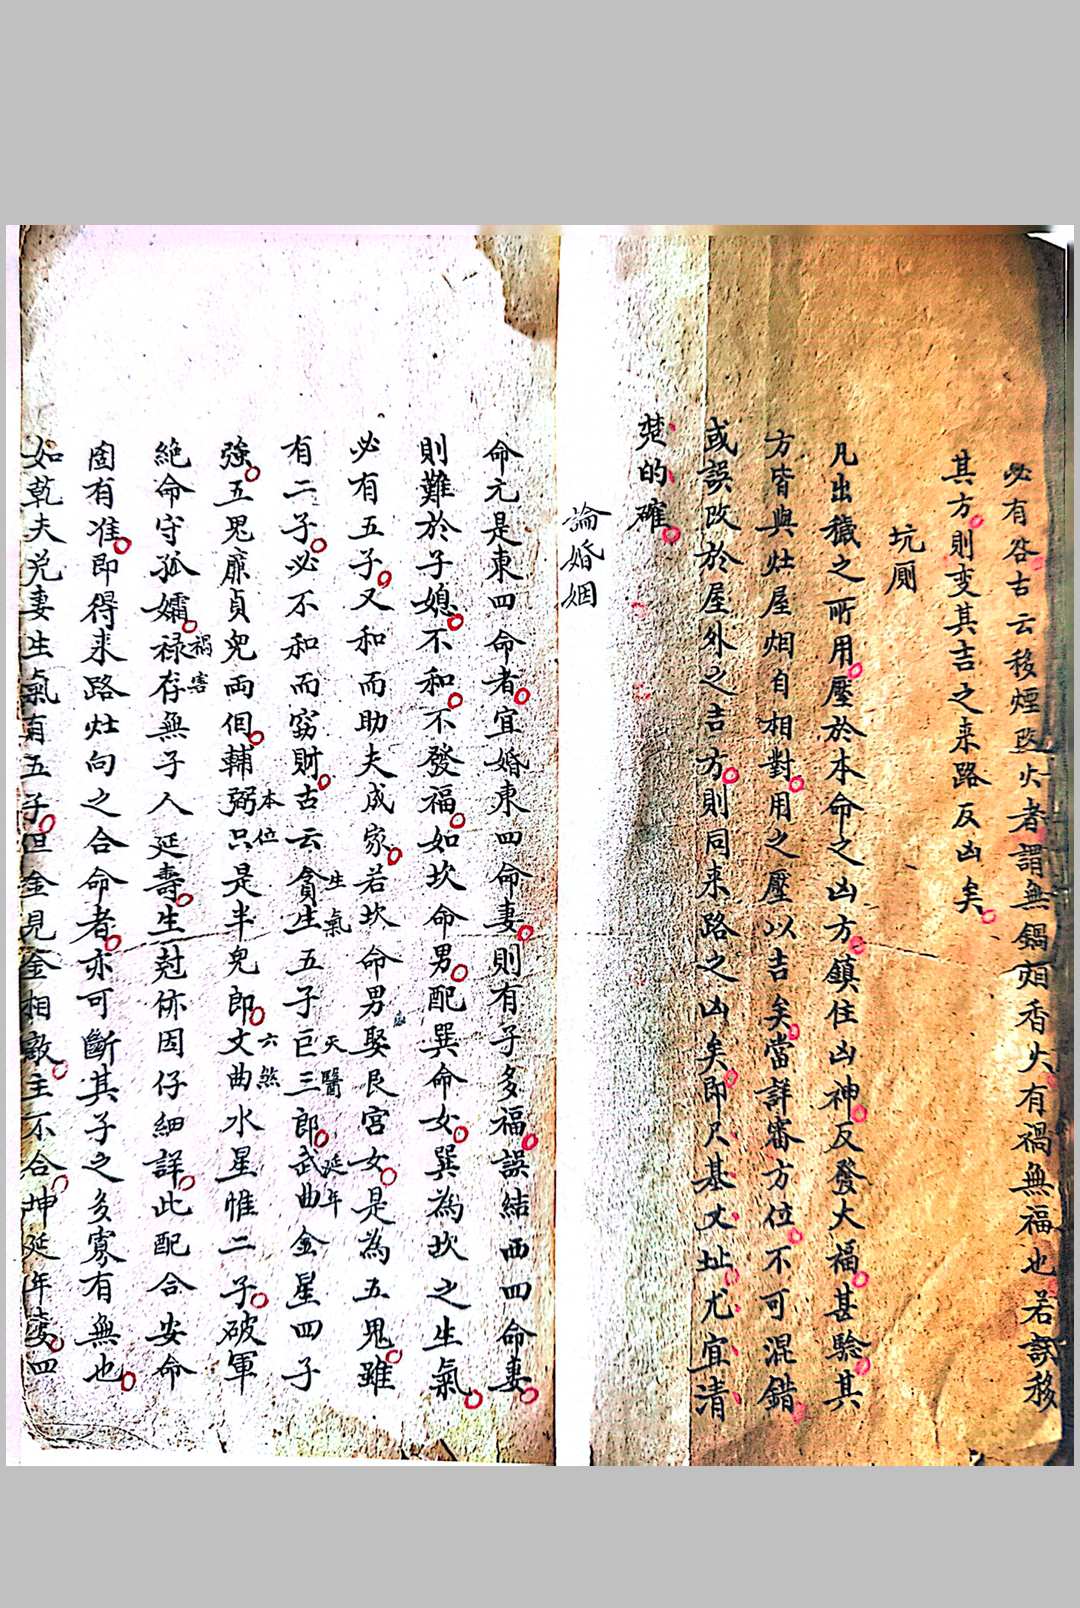 必有咎古云移煙改火者謂無鍋烟香火有禍無福也若誤移
其方則变其吉之来路反凶矣
坑厠
凡出穢之所用壓於本命之凶方鎮住凶神反發大福甚驗其
方皆與灶屋烟自相對用之壓以吉矣當詳審方位不可混錯
或誤改於屋外之吉方則同来路之凶矣即尺基丈址尤宜清
楚的確
論婚姻
命元是東四命者宜婚東四命妻則有子多福誤結西四命妻
則難於子媳不和不發福如坎命男配巽命女巽為坎之生氣
必有五子又和而助夫成家若坎命男娶艮宮女是為五鬼雖
有二子必不和而窮財古云貪生五子巨三郎武曲金星四子
生氣 天醫 延年
強五鬼廉貞兒両個輔弼只是半兒郎文曲水星惟二子破軍
本位 六煞
絶命守孤孀禄存無子人延壽生尅你因仔細詳此配合安命
禍害
圖有准即得来路灶向之合命者亦可斷其子之多寡有無也
如乾夫兌妻生氣有五子但金見金相敵主不合坤延年妻四